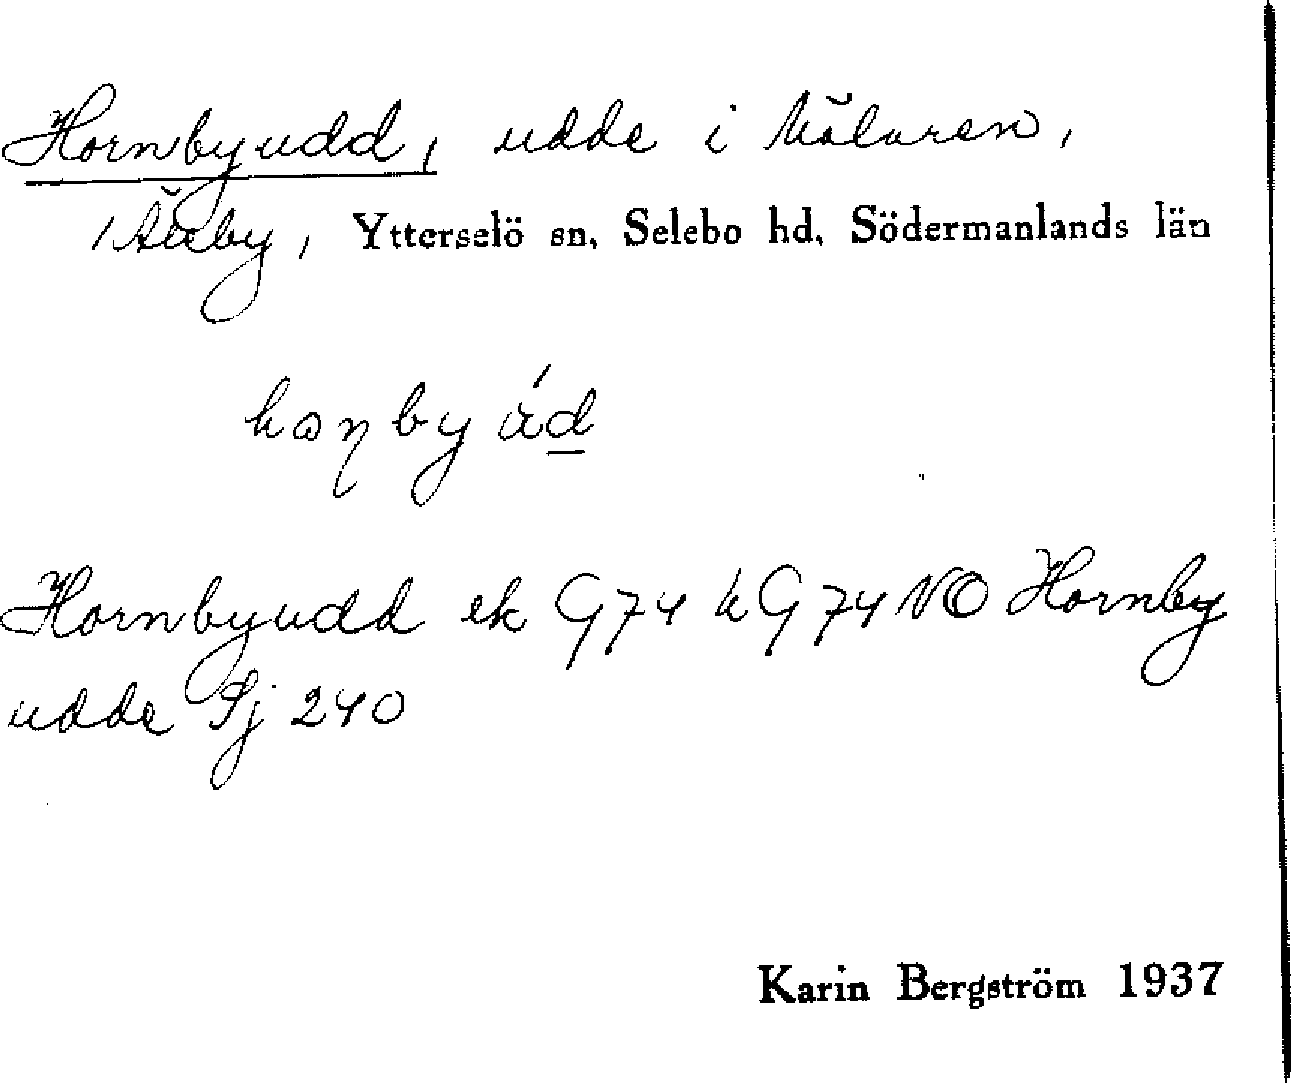 Hornbyudd, udde i Mälaren,
Åleby, Ytterselö sn, Selebo hd, Södermanlands län
hɷɳbyúd
Hornbyudd ek G74 h G74 NO Hornby
udde Sj 240
Karin Bergström 1937